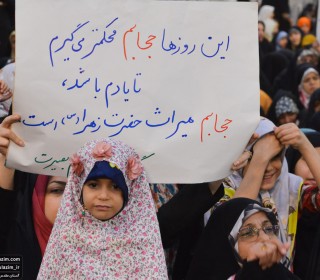 این روزها حجابم محکمتر می‌گیرم
تا یادم باشد،
حجابم میراث حضرت زهرا(س) است